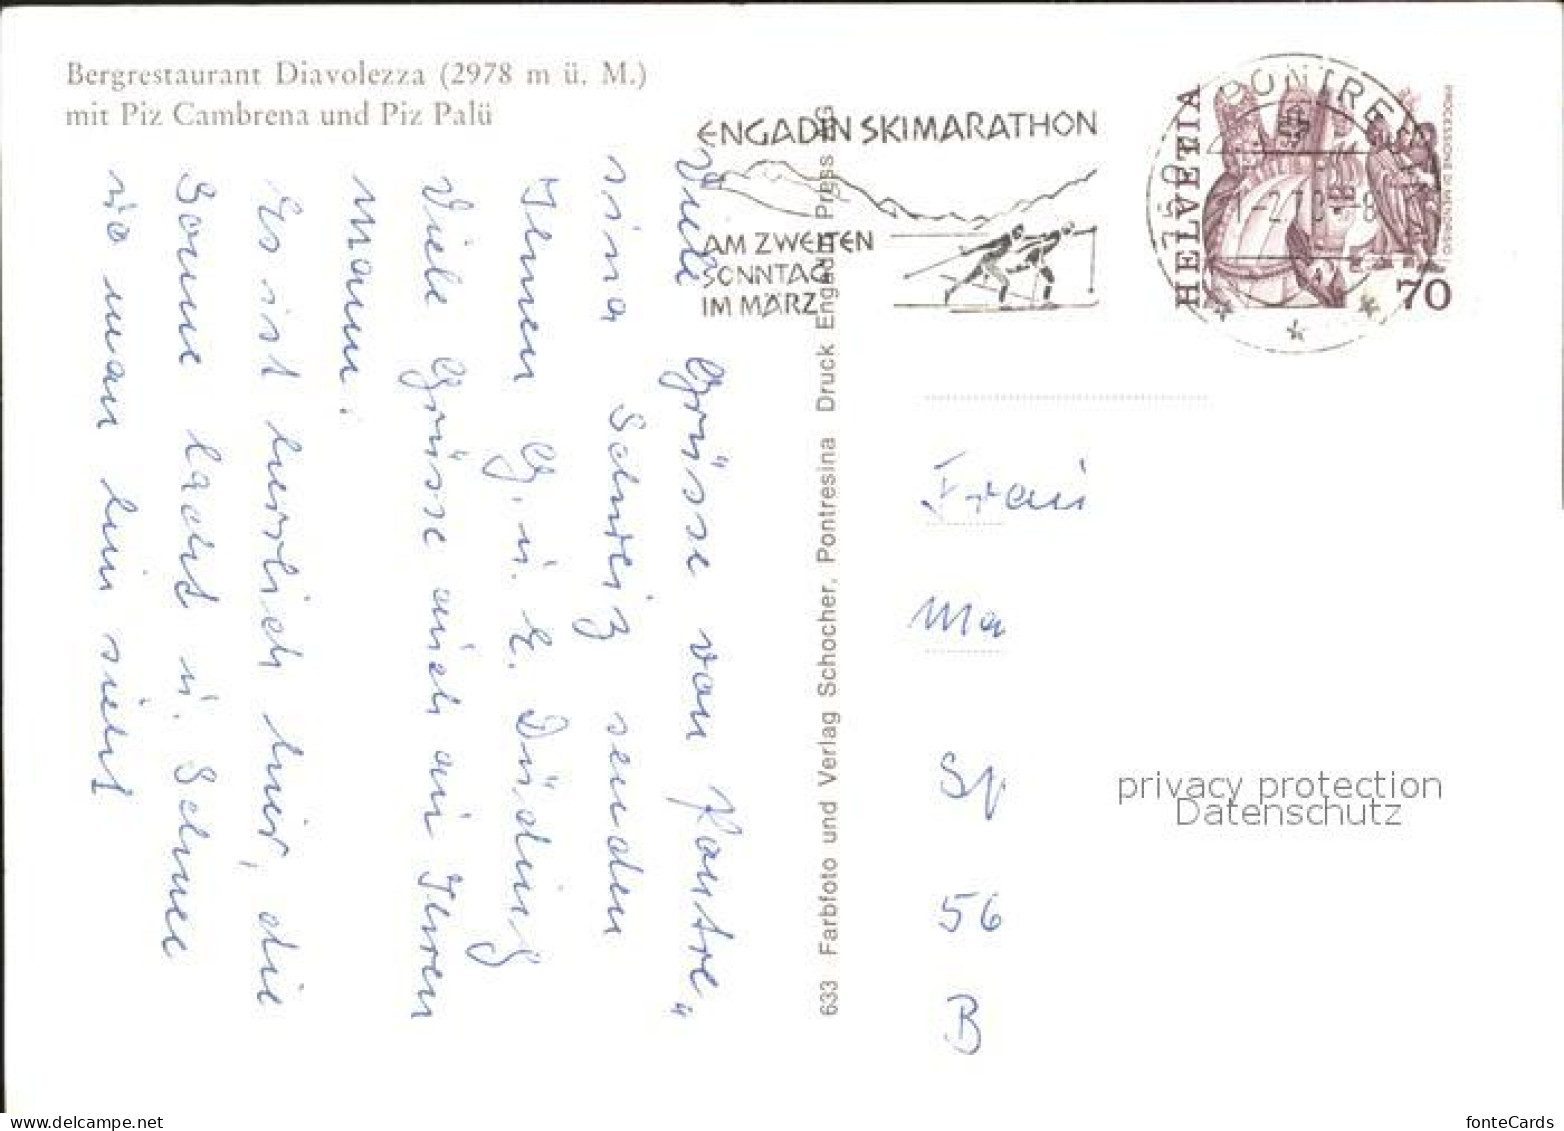 Bergrestaurant Diavolezza (2978 m ü. M.)
mit Piz Cambrena und Piz Palü
ENGADIN SKIMARATHON
AM ZWEITEN
SONNTAG
IM MÄRZ
HELVETIA
PROCESSIONE DI MENDRISIO
70
Viele Grüsse von Pontre"
sina Schweiz senden
Ihnen G. u. E. Düding
Viele Grüsse auch an Ihren
Mann.
Es ist herrlich hier, die
Sonne lacht u. Schnee
wo man hin sieht
633 Farbfoto und Verlag Schocher, Pontresina Druck Engadin Press AG
Frau
Ma
Sp
56
B
privacy protection
Datenschutz
www.delcampe.net
fonteCards